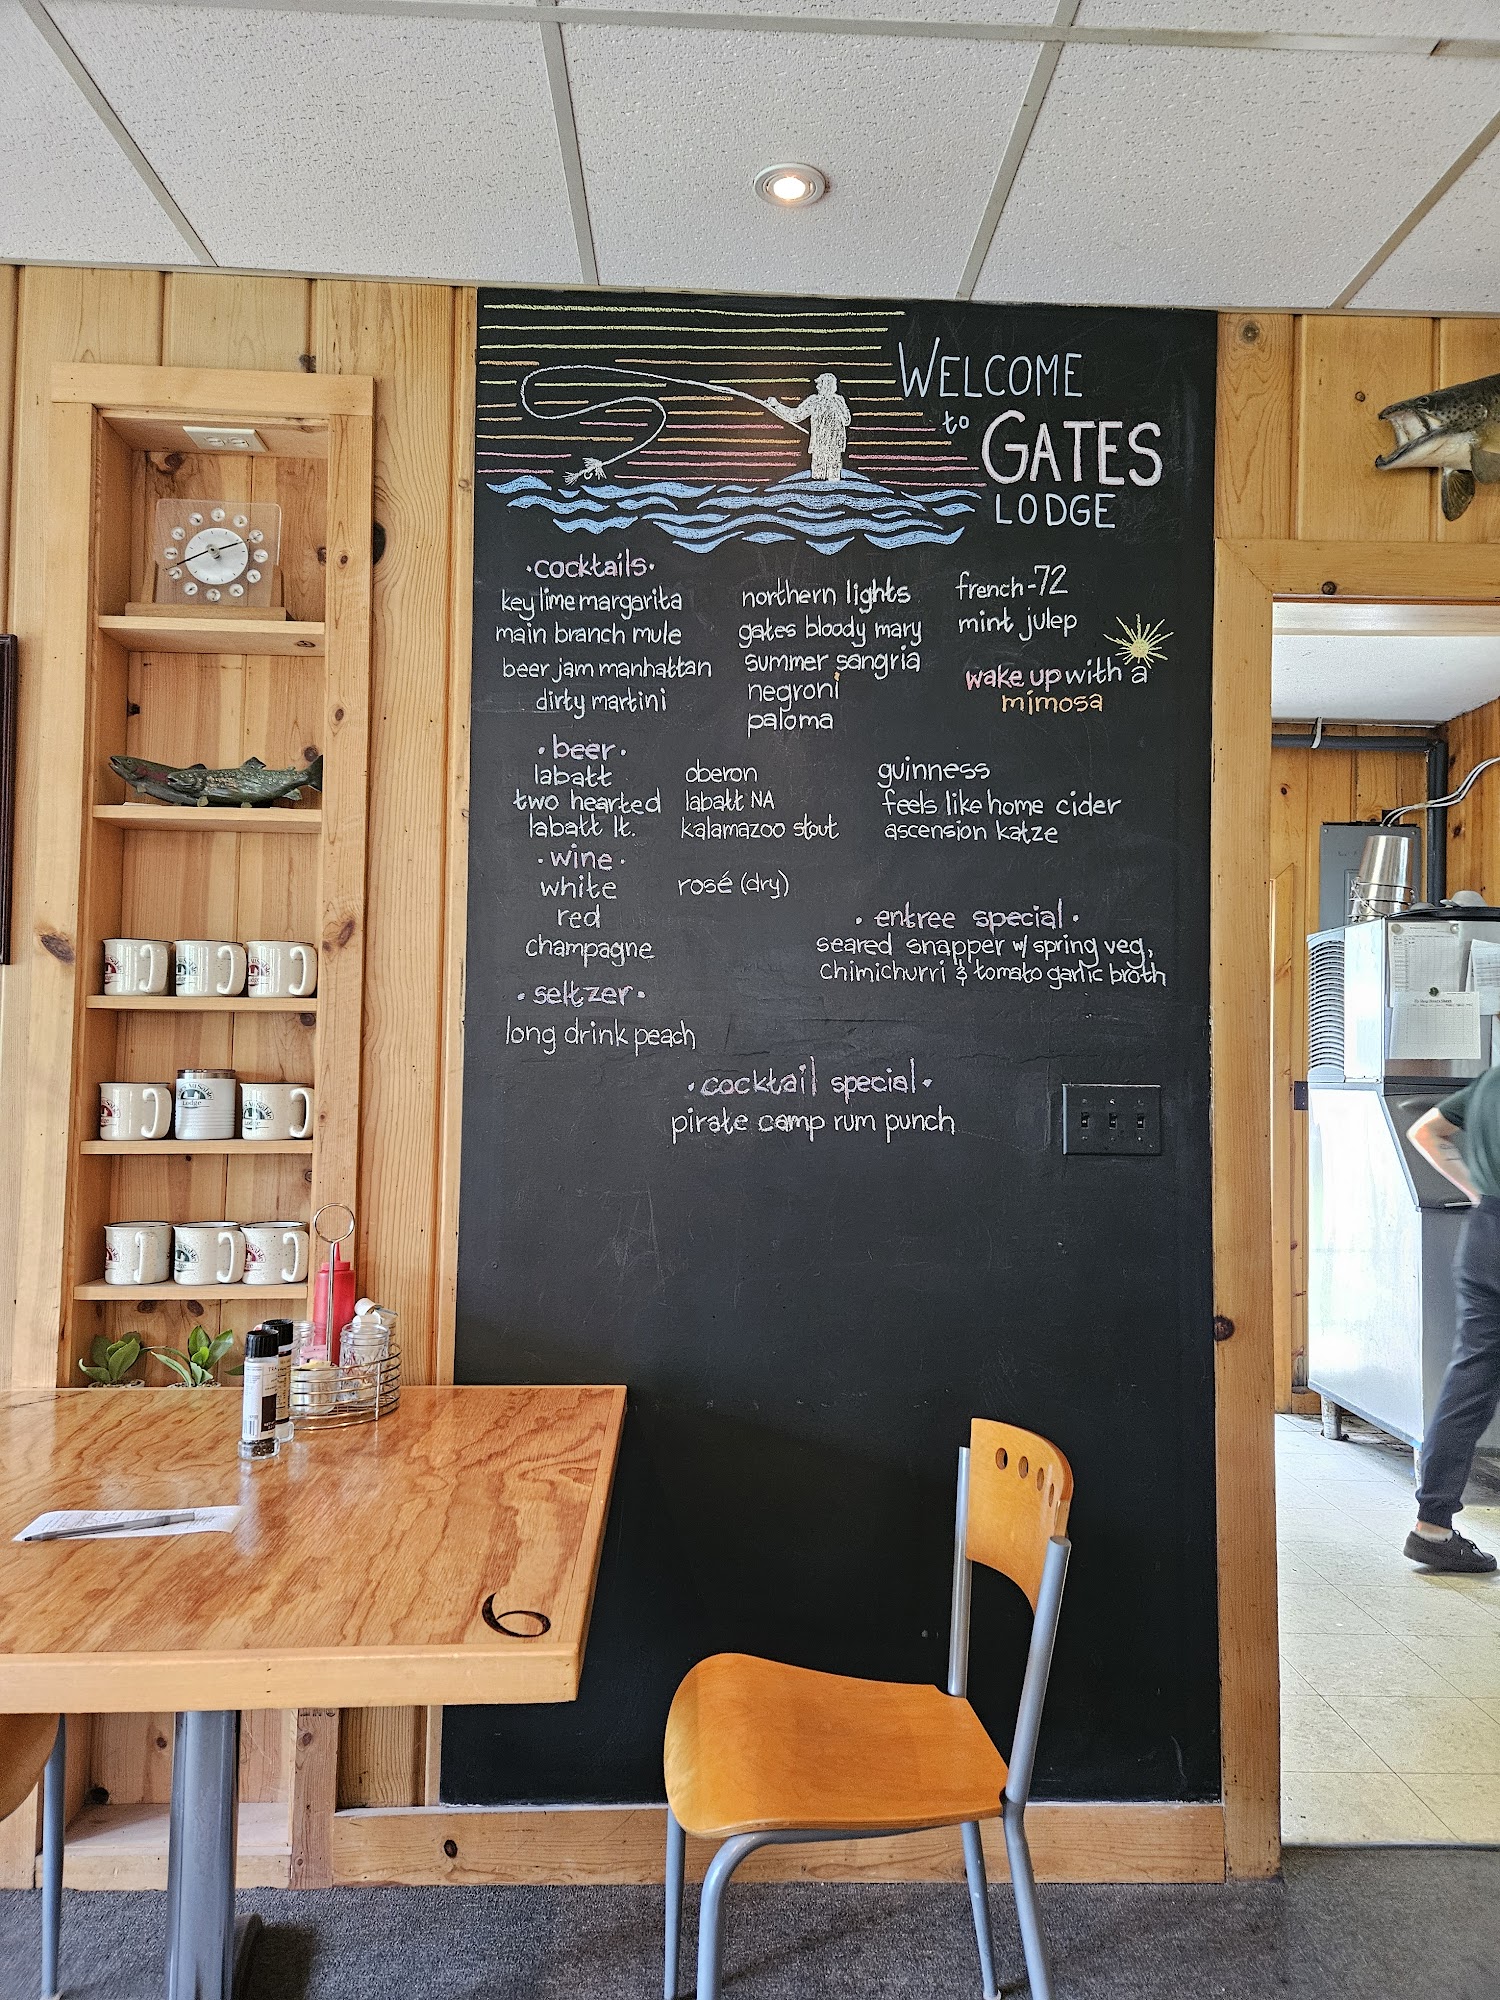 WELCOME
to GATES
LODGE
·cocktails·
key lime margarita
main branch mule
beer jam manhattan
dirty martini
northern lights
gates bloody mary
summer sangria
negroni
paloma
french-72
mint julep
wake up with a
mimosa
·beer·
labatt
two hearted
labatt lt.
oberon
labatt NA
kalamazoo stout
guinness
feels like home cider
ascension katze
·wine·
white
red
champagne
rosé (dry)
· entree special ·
seared snapper w/ spring veg,
chimichurri & tomato garlic broth
· seltzer ·
long drink peach
· cocktail special ·
pirate camp rum punch
6